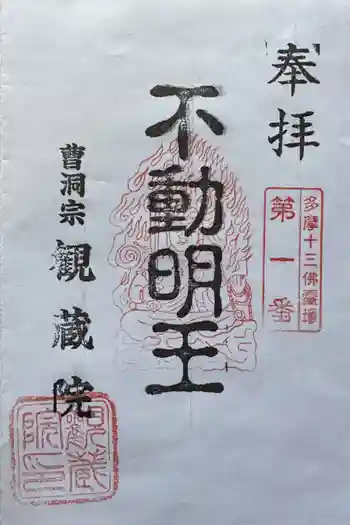 奉拝
多摩十三佛霊場
第一番
不動明王
曹洞宗
観蔵院
観蔵
院印